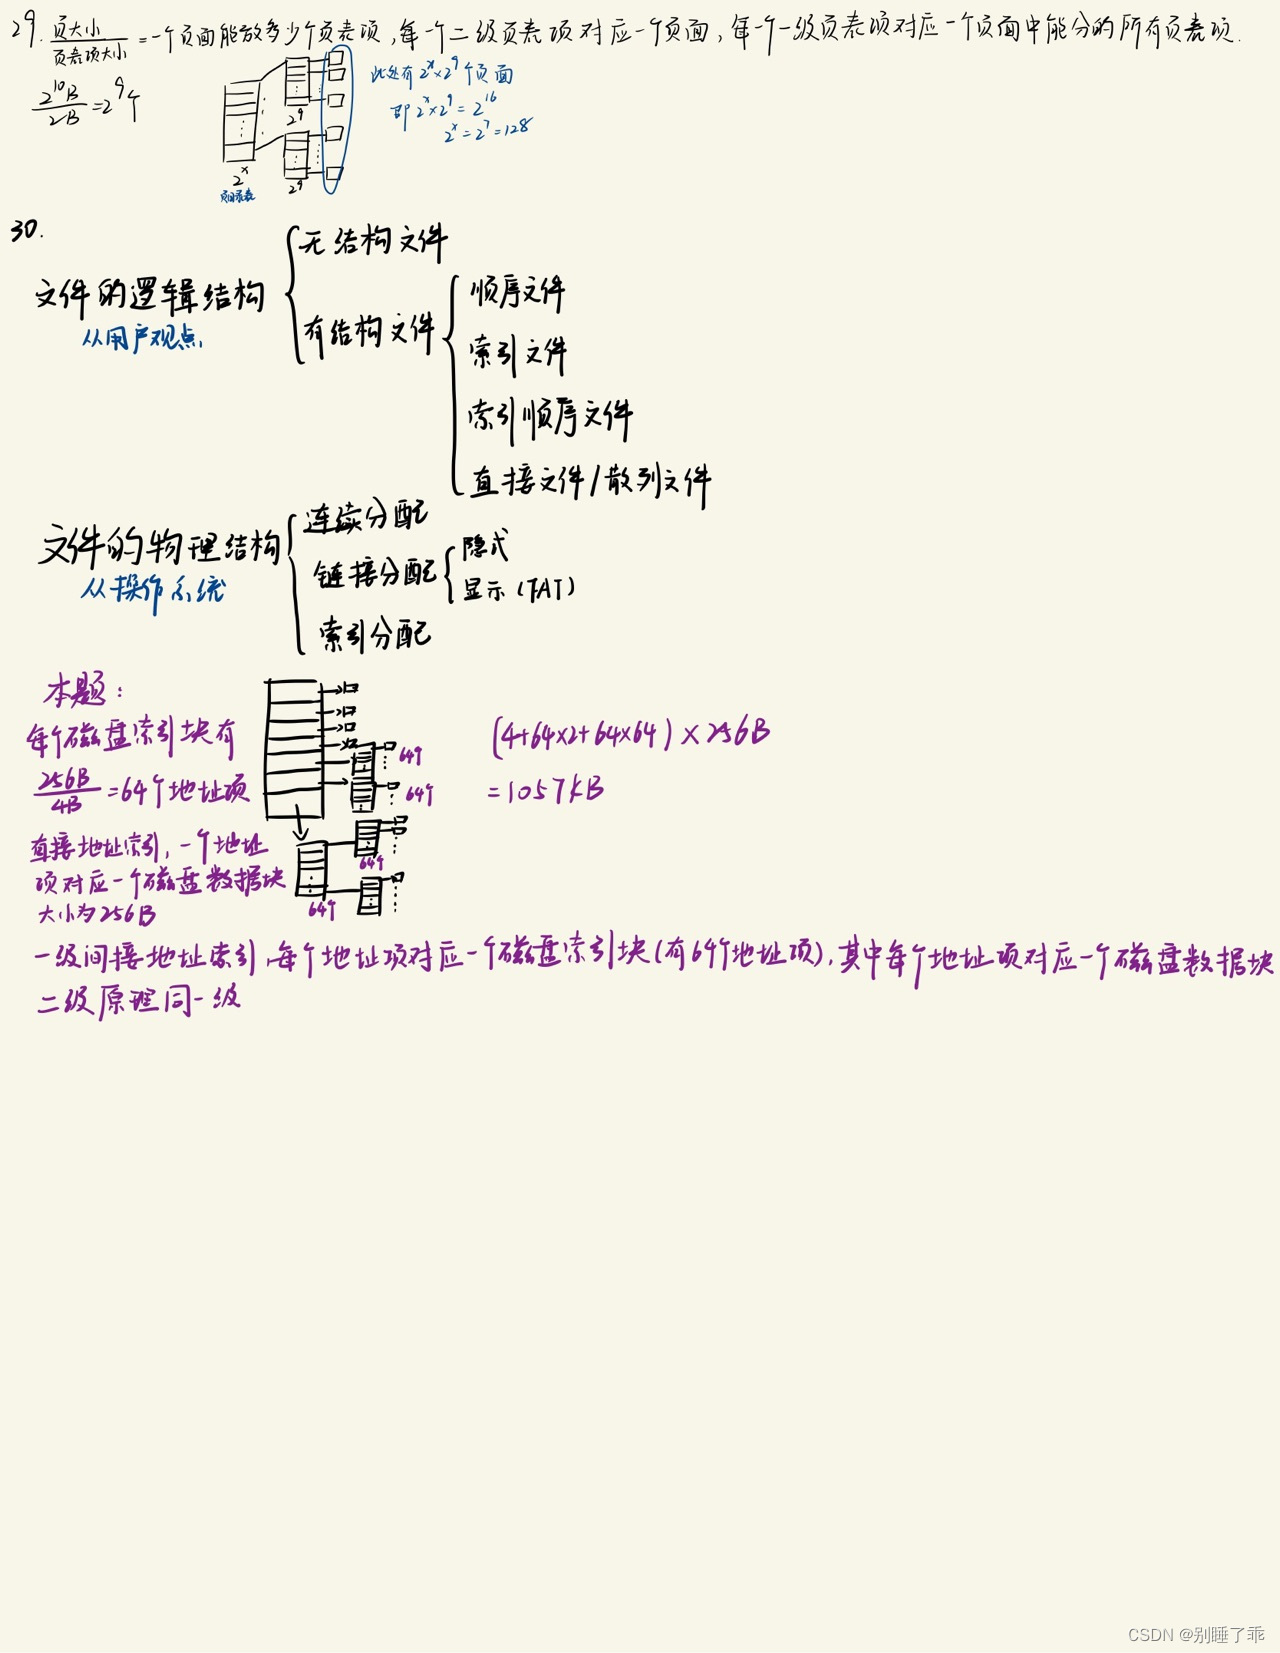 29. 页大小/页表项大小 = 一个页面能放多少个页表项,每一个二级页表项对应一个页面,每一个一级页表项对应一个页面中能分的所有页表项.
2^10B/2B = 2^9个
2^9
2^x
页目录表
2^9
此处有 2^x×2^9 个页面
即 2^x×2^9 = 2^16
2^x = 2^7 = 128
30.
文件的逻辑结构
从用户观点
无结构文件
有结构文件
顺序文件
索引文件
索引顺序文件
直接文件/散列文件
文件的物理结构
从操作系统
连续分配
链接分配
隐式
显示(FAT)
索引分配
本题:
每个磁盘索引块有
256B/4B = 64个地址项
直接地址索引,一个地址
项对应一个磁盘数据块
大小为256B
64个
64个
64个
64个
(4+64×2+64×64)×256B
=1057kB
一级间接地址索引,每个地址项对应一个磁盘索引块(有64个地址项),其中每个地址项对应一个磁盘数据块
二级原理同一级
CSDN @别睡了乖